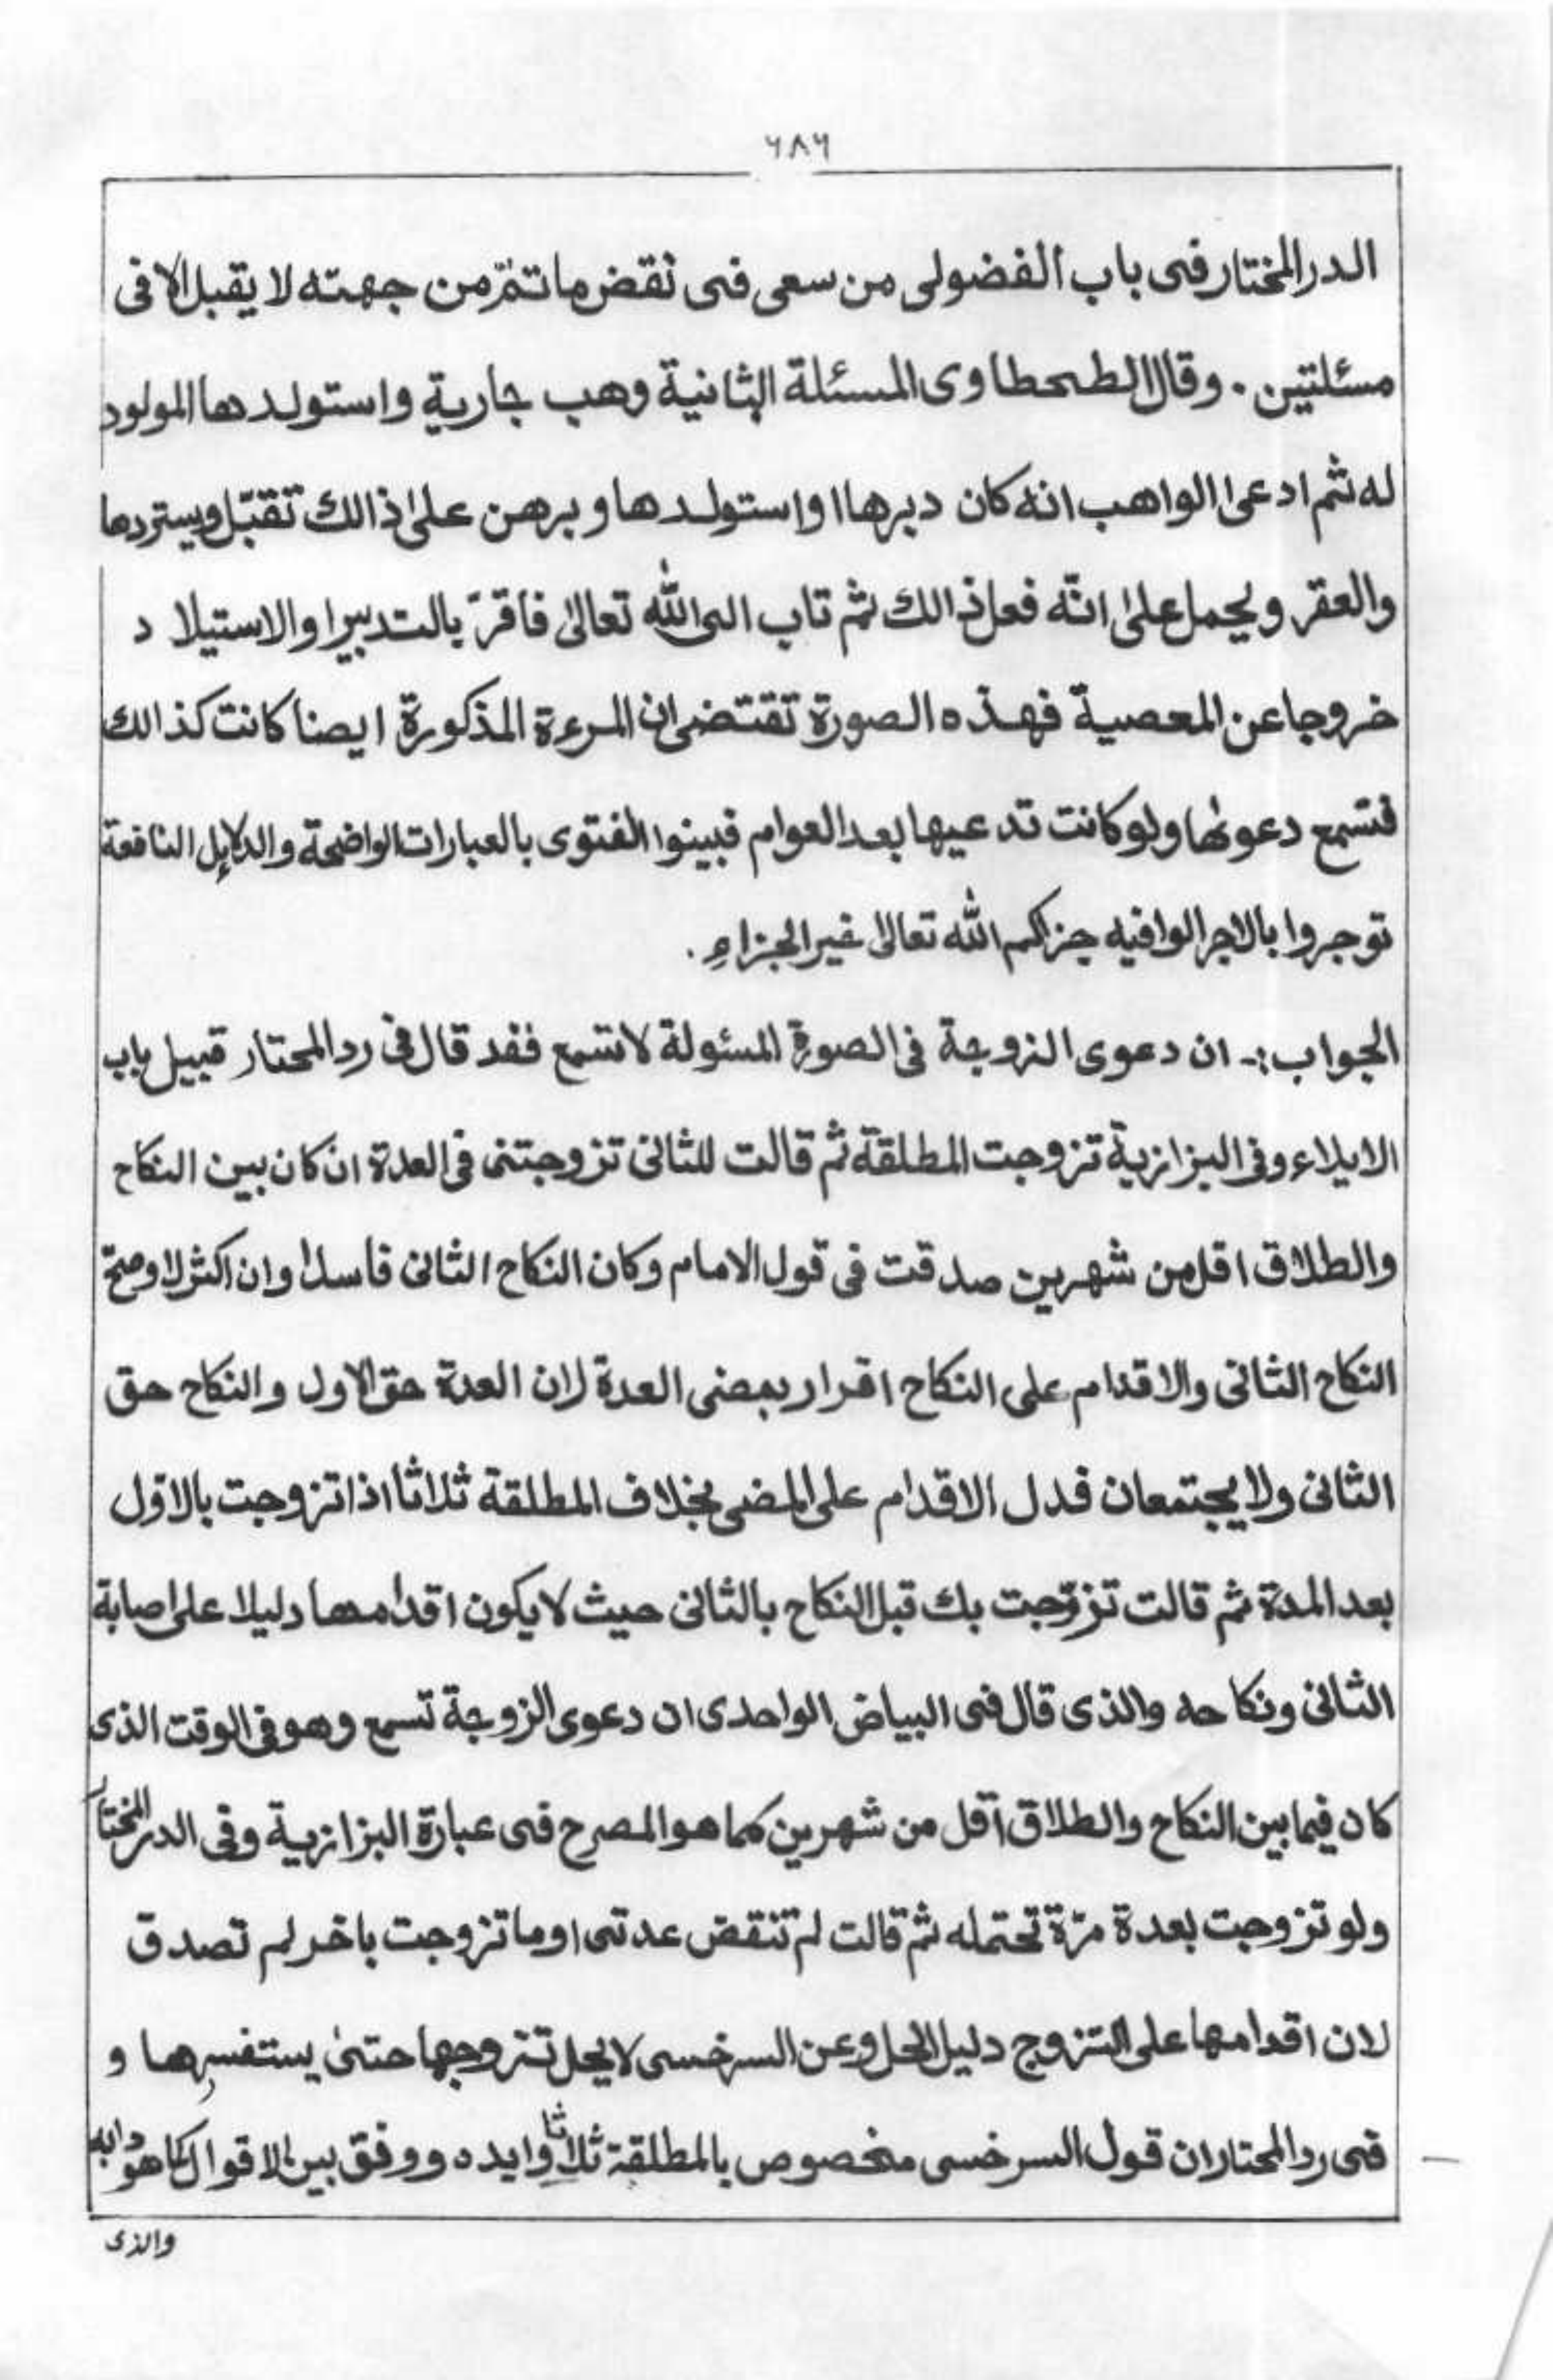 ٦٨٦
الدرالمختار فى باب الفضولى من سعى فى نقض ماتتم من جهته لا يقبل الا فى
مسئلتين . وقال الطحطاوى المسئلة الثانية وهب جارية واستولدها المولود
له ثم ادعى الواهب انه كان دبرها اواستولدها و برهن على ذالك تقبل ويستردها
والعقر ويحمل على انه فعل ذالك ثم تاب الى الله تعالى فاقر بالتدبير او الاستيلا د
خروجا عن المعصية فهذه الصورة تقتضى ان المرءة المذكورة ايضا كانت كذالك
فتسمع دعوٰها ولو كانت تدعيها بعد العوام فبينوا الفتوى بالعبارات الواضحة والدلايل النافعة
توجروا بالاجر الوافيه جزاكم الله تعالى خير الجزاء .
الجواب :- ان دعوى الزوجة فى الصورة المسئولة لا تسمع فقد قال فى رد المحتار قبيل باب
الايلاء وفى البزازية تزوجت المطلقة ثم قالت للثانى تزوجتنى فى العدة ان كان بين النكاح
والطلاق اقل من شهرين صدقت فى قول الامام وكان النكاح الثانى فاسدا وان اكثر لا وصح
النكاح الثانى والاقدام على النكاح اقرار بمضى العدة لان العدة حق الاول والنكاح حق
الثانى ولا يجتمعان فدل الاقدام على المضى بخلاف المطلقة ثلاثا اذا تزوجت بالاول
بعد المدة ثم قالت تزوّجت بك قبل النكاح بالثانى حيث لا يكون اقدامها دليلا على اصابة
الثانى ونكاحه والذى قال فى البياض الواحدى ان دعوى الزوجة تسمع وهو فى الوقت الذى
كان فيما بين النكاح والطلاق اقل من شهرين كما هو المصرح فى عبارة البزازية وفى الدر المختار
ولو تزوجت بعدة مرّة تحتمله ثم قالت لم تنقض عدتى او ما تزوجت باخر لم تصدق
لان اقدامها على التزوج دليل الحل وعن السرخسى لا يحل تزوجها حتىٰ يستفسرها و
فى رد المحتار ان قول السرخسى مخصوص بالمطلقة ثلاثا وايده ووفق بين الاقوال كما هو دابه
والذى